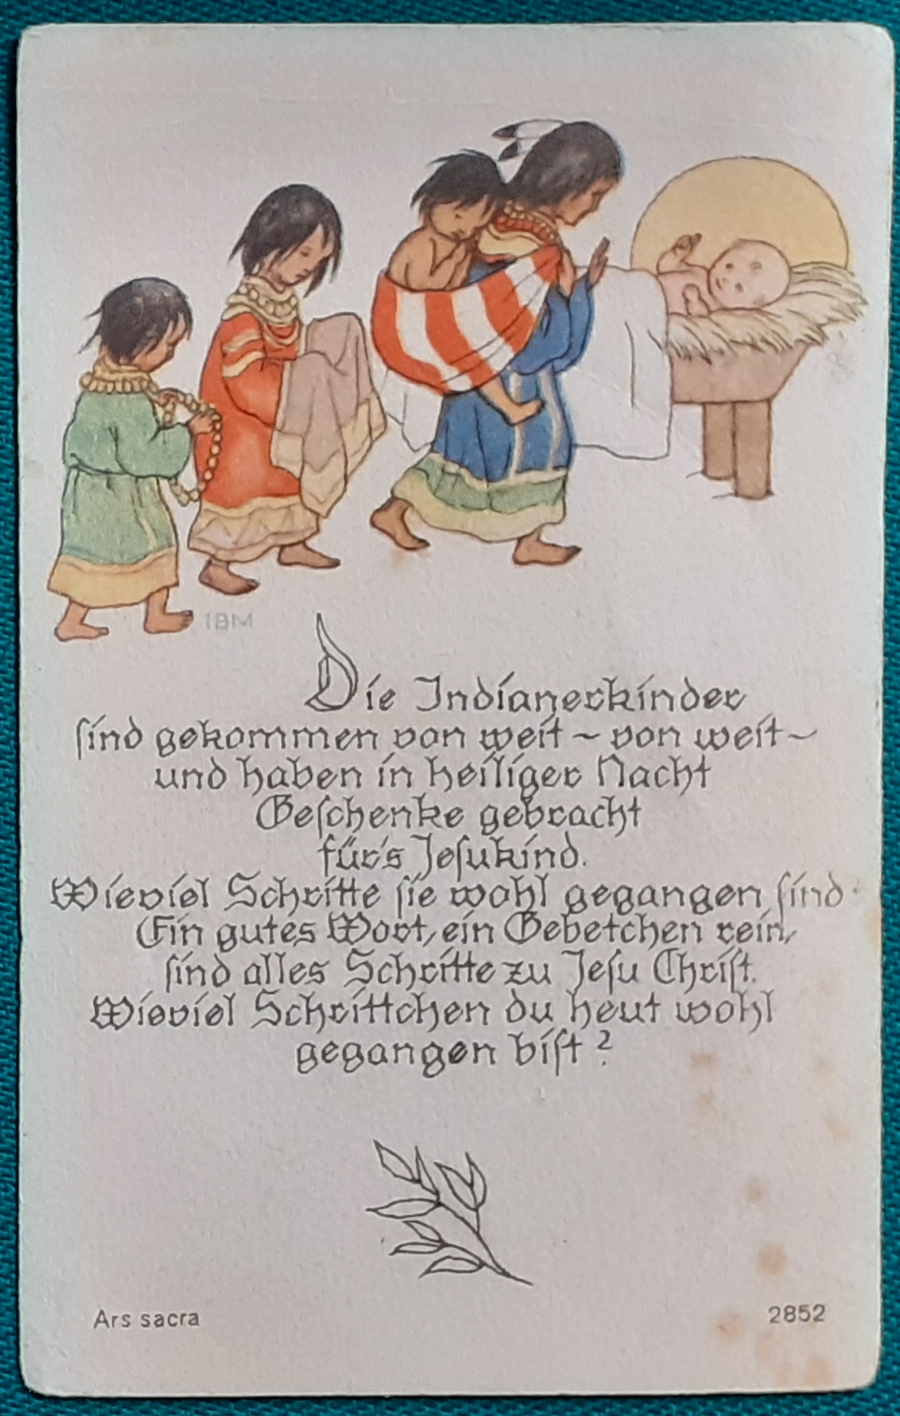 IBM
Die Indianerkinder
sind gekommen von weit ~ von weit ~
und haben in heiliger Nacht
Geschenke gebracht
für's Jesukind.
Wieviel Schritte sie wohl gegangen sind.
Ein gutes Wort, ein Gebetchen rein,
sind alles Schritte zu Jesu Christ.
Wieviel Schrittchen du heut wohl
gegangen bist?
Ars sacra
2852